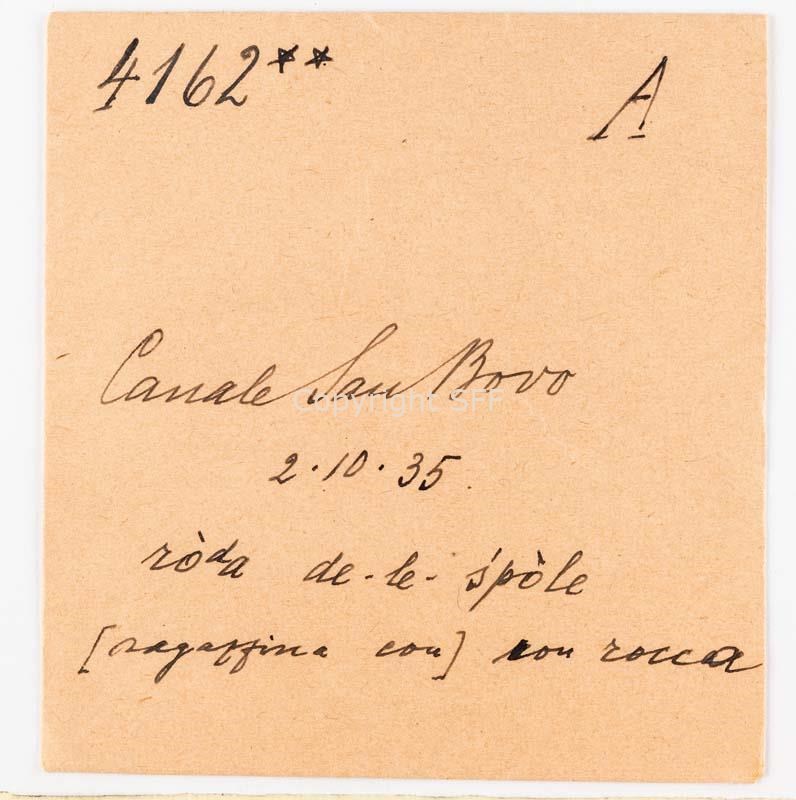 4162** A
Canale San Bovo
Copyright SFF
2.10.35.
ròda de-le-śpòle
[ragazzina con] con rocca